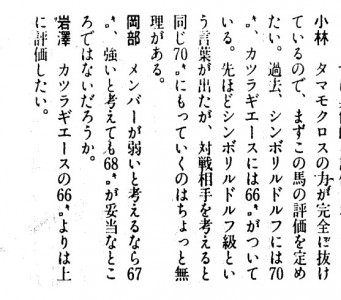 小林　タマモクロスの力が完全に抜け
ているので、まずこの馬の評価を定め
たい。過去、シンボリルドルフには70
㌔、カツラギエースには66㌔がついて
いる。先ほどシンボリルドルフ級とい
う言葉が出たが、対戦相手を考えると
同じ70㌔にもっていくのはちょっと無
理がある。
岡部　メンバーが弱いと考えるなら67
㌔、強いと考えても68㌔が妥当なとこ
ろではないだろうか。
岩澤　カツラギエースの66㌔よりは上
に評価したい。